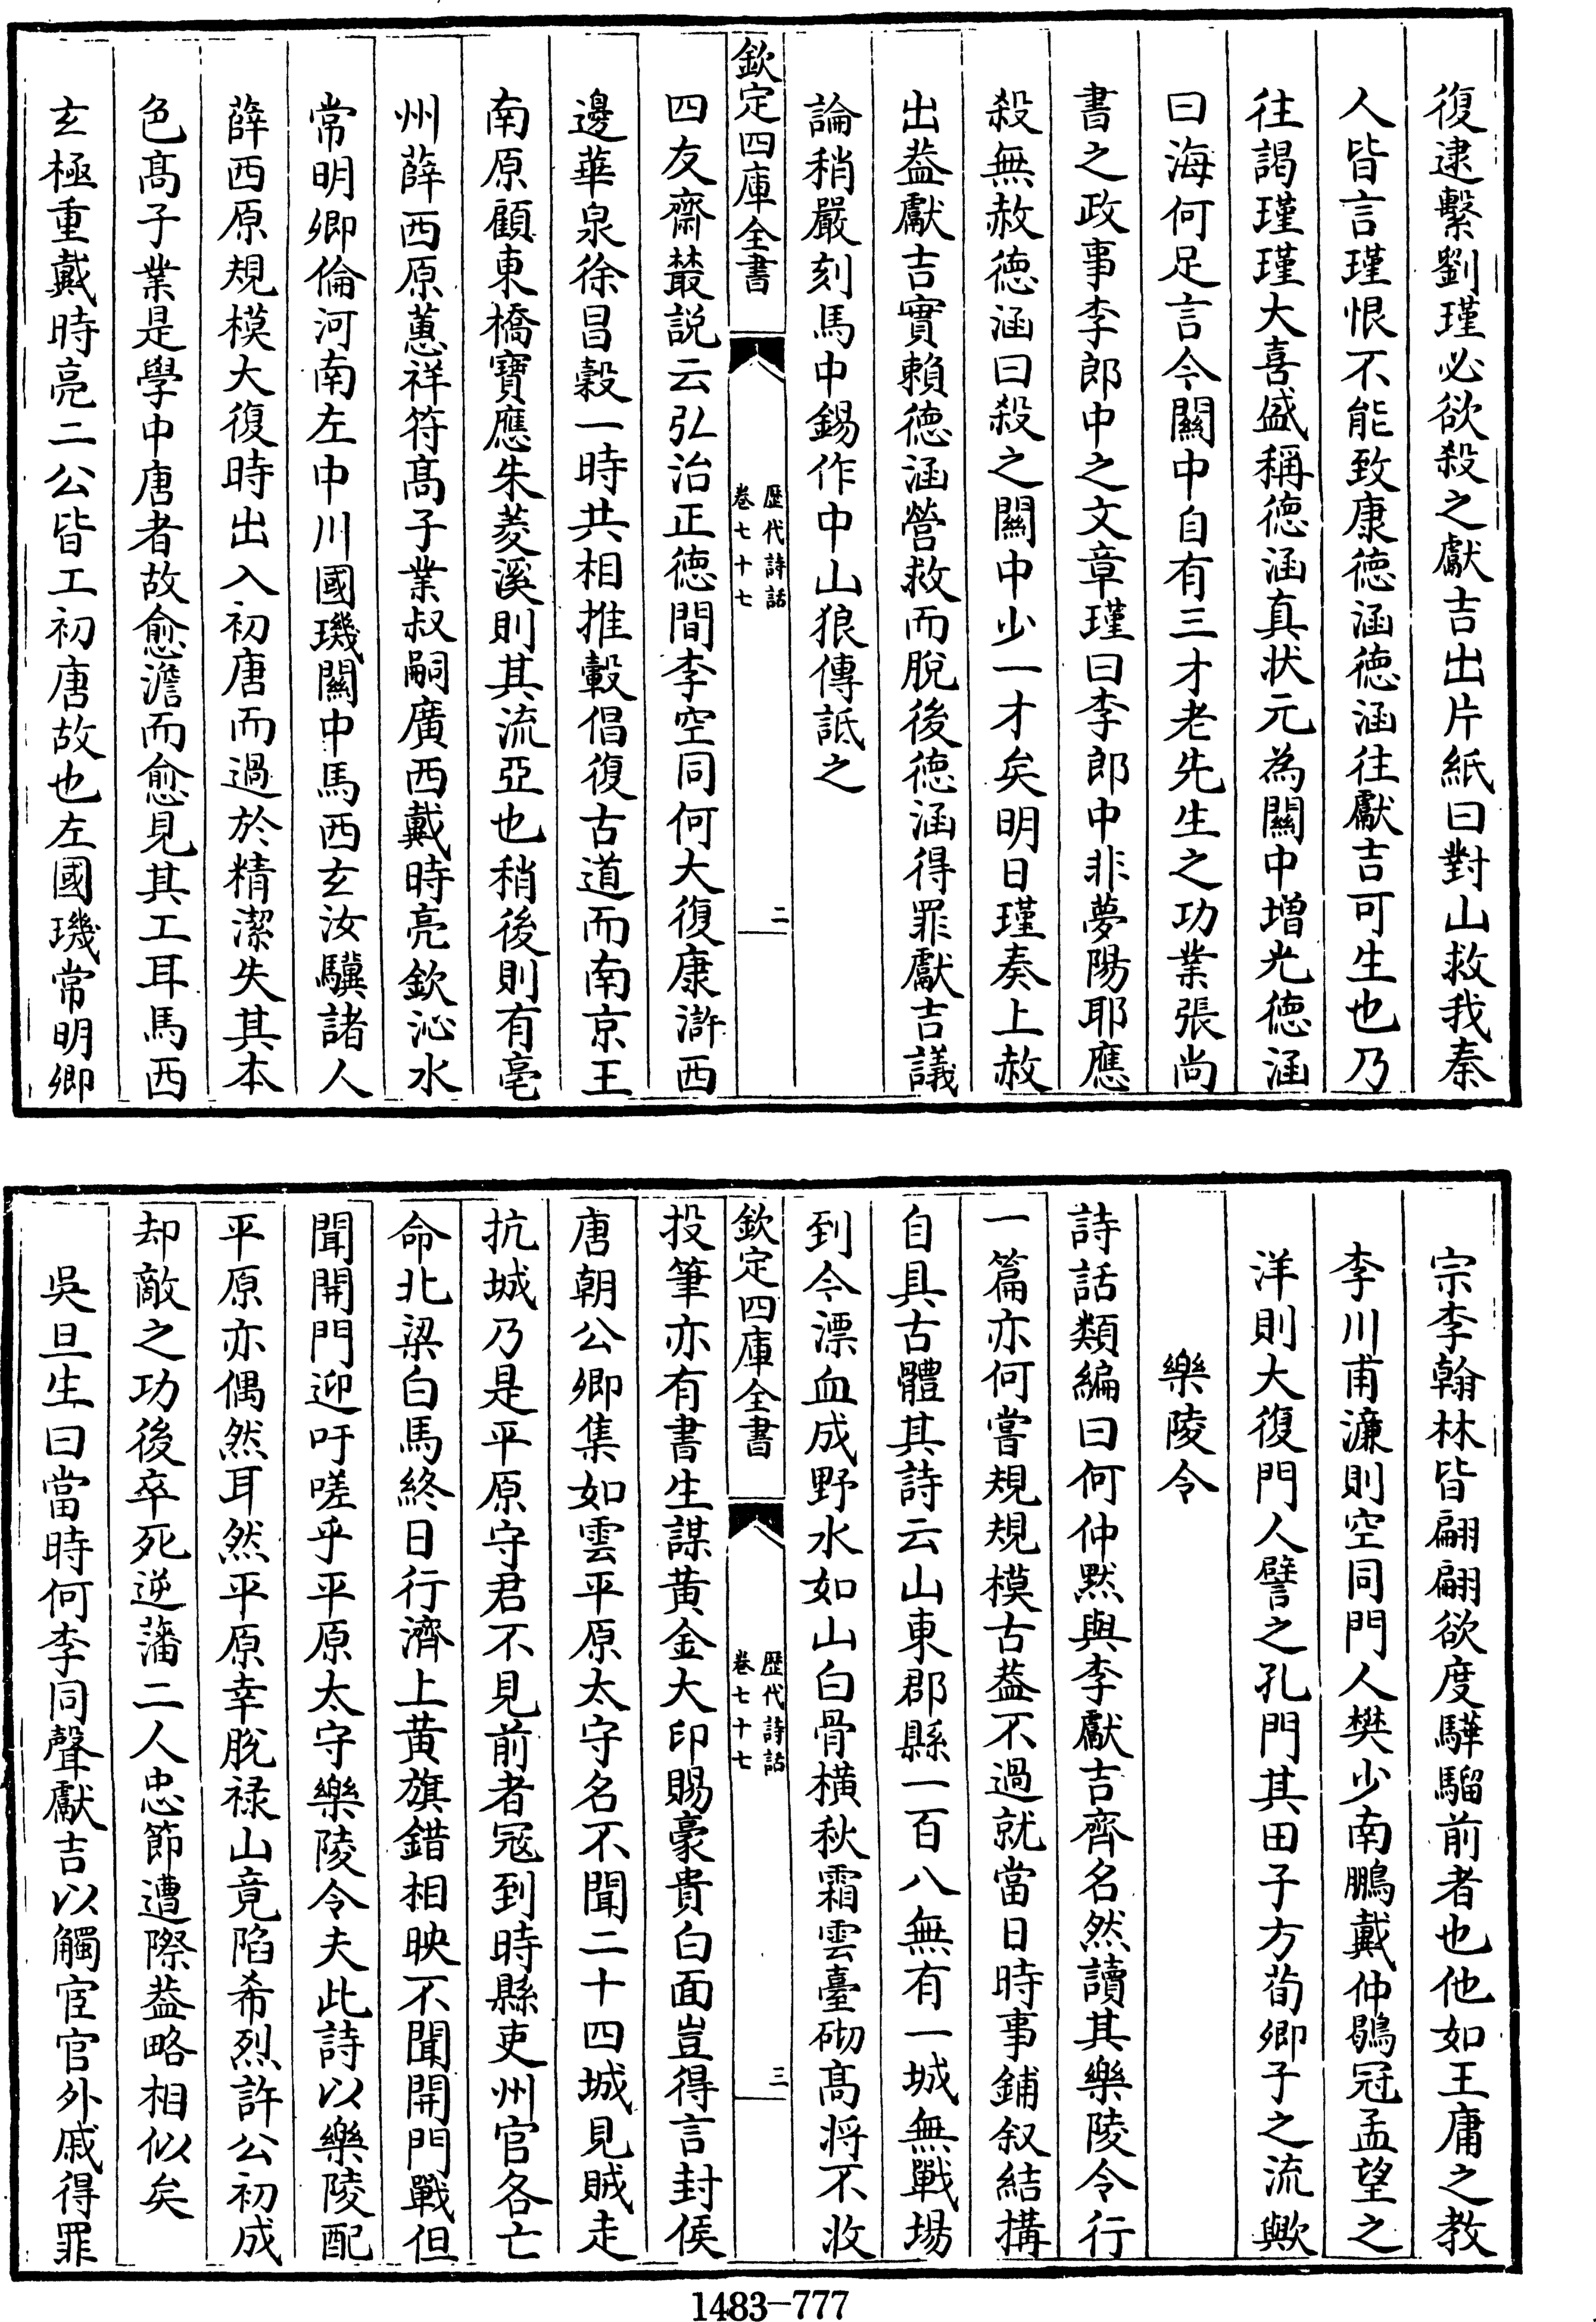 復逮繫劉瑾必欲殺之獻吉出片紙曰對山救我秦
人皆言瑾恨不能致康德涵德涵往獻吉可生也乃
往謁瑾瑾大喜盛稱德涵真狀元為關中增光德涵
曰海何足言今關中自有三才老先生之功業張尚
書之政事李郎中之文章瑾曰李郎中非夢陽耶應
殺無赦德涵曰殺之關中少一才矣明日瑾奏上赦
出葢獻吉實賴德涵營救而脫後德涵得罪獻吉議
論稍嚴刻馬中錫作中山狼傳詆之
欽定四庫全書
歴代詩話
卷七十七
二
四友齋叢說云弘治正德間李空同何大復康滸西
邊華泉徐昌穀一時共相推轂倡復古道而南京王
南原顧東橋寶應朱菱溪則其流亞也稍後則有亳
州薛西原蕙祥符髙子業叔嗣廣西戴時亮欽沁水
常明卿倫河南左中川國璣關中馬西玄汝驥諸人
薛西原規模大復時出入初唐而過於精潔失其本
色髙子業是學中唐者故愈澹而愈見其工耳馬西
玄極重戴時亮二公皆工初唐故也左國璣常明卿
宗李翰林皆翩翩欲度驊騮前者也他如王庸之教
李川甫濂則空同門人樊少南鵬戴仲鶡冠孟望之
洋則大復門人譬之孔門其田子方荀卿子之流歟
樂陵令
詩話類編曰何仲黙與李獻吉齊名然讀其樂陵令行
一篇亦何嘗規規模古葢不過就當日時事鋪叙結搆
自具古體其詩云山東郡縣一百八無有一城無戰場
到今漂血成野水如山白骨橫秋霜雲臺砌髙將不收
欽定四庫全書
歴代詩話
卷七十七
三
投筆亦有書生謀黃金大印賜豪貴白面豈得言封侯
唐朝公卿集如雲平原太守名不聞二十四城見賊走
抗城乃是平原守君不見前者冦到時縣吏州官各亡
命北梁白馬終日行濟上黃旗錯相映不聞開門戰但
聞開門迎吁嗟乎平原太守樂陵令夫此詩以樂陵配
平原亦偶然耳然平原幸脫禄山竟陷希烈許公初成
却敵之功後卒死逆藩二人忠節遭際葢略相似矣
吳旦生曰當時何李同聲獻吉以觸宦官外戚得罪
1483—777